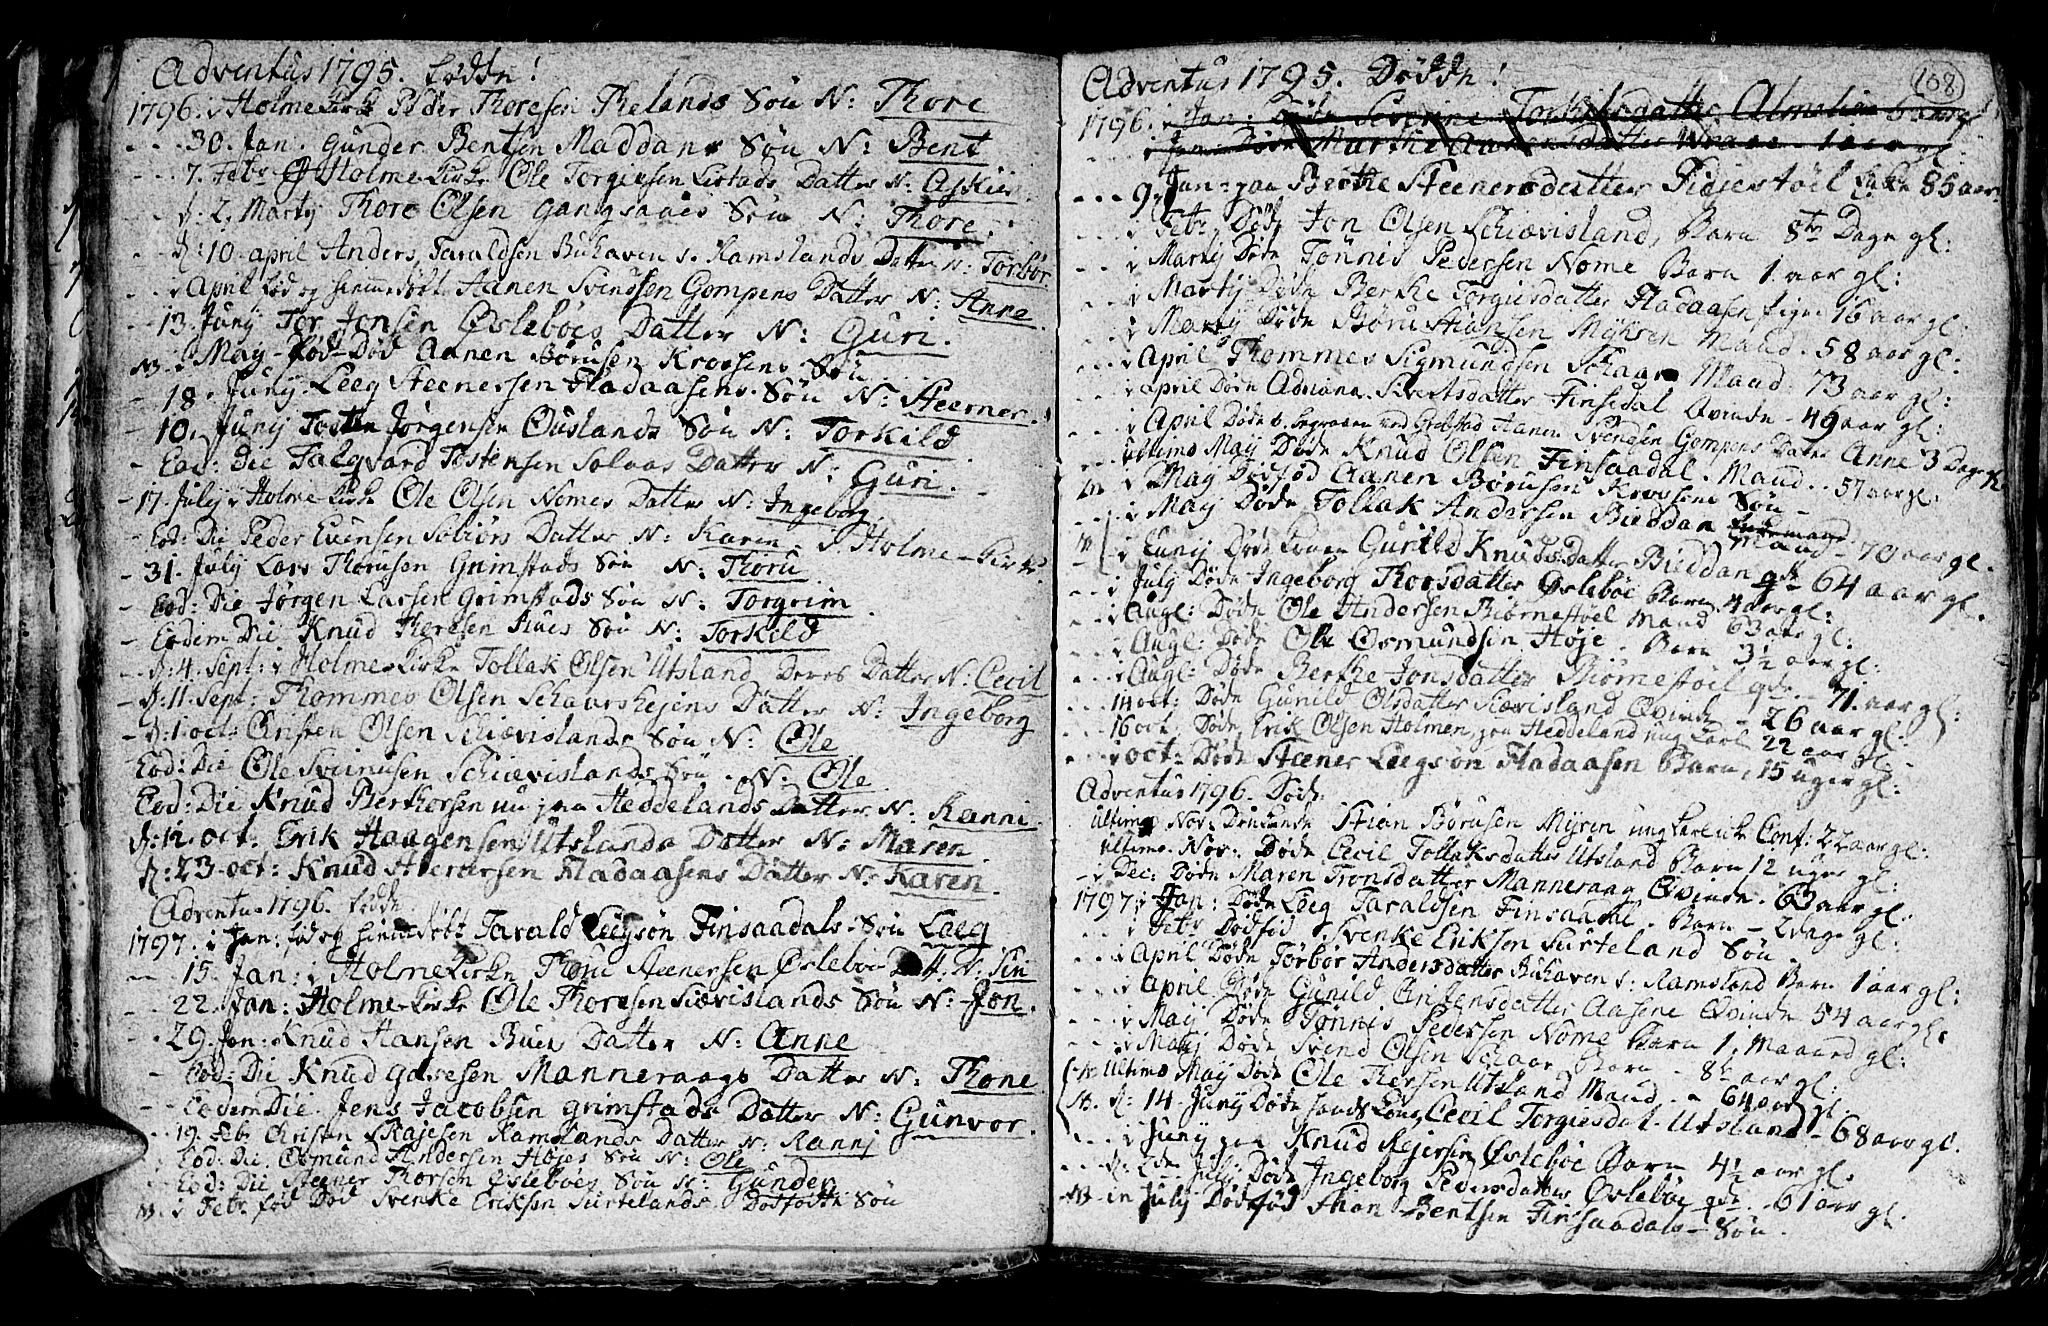 Adventus 1795. fødde!
1796. i Holme Kirke Peder Thoresen Thelands Søn N: Thore
30. Jan. Gunder Bentsen Maddans Søn N: Bent
7. Febr Holme Kirke Ole Torgersen Datter N:
d: 2. Martij Thore Olsen Gangsaaes Søn N: Thore.
d: 10. april Anders Taraldsen Buhaven v. Ramslands Datter N: Torbor
i April fød og hiemmedøbt Aanen Svendsen Gompens Datter N: Anne
13. Junij Tor Jonsen Øslebøes Datter N: Guri.
NB. i May - fød - Død Aanen Børusen Kroosens Søn
18. Junij Leeg Steenersen Fladaasens Søn N: Steener.
10. Junij Tosten Jørgensen Ouslands Søn N: Torkild
Eod: Die Talgvard Tostensen Solaas Datter N: Guri.
17. Julij i Holme Kirke Ole Olsen Nomes Datter N: Ingeborg
Eod: Die Peder Evensen Datter N: Karen i Holme - Kirke
31. Julij Lars Thorusen Grimstads Søn N: Thoru
Eod: Die Jørgen Larsen Grimstads Søn N: Torgrim
Eodem Die Knud Thoresen Søn N: Torkild
d: 4. Sept: i Holme Kirke Tollak Olsen Utsland Deres Datter N: Cecil
d: 11. Sept: Thommes Olsen Schaarshejens Datter N: Ingeborg
d: 1. oct: Christen Olsen Schiævislands Søn N: Ole
Eod: Die Ole Svenusen Schiævislands Søn N: Ole
Eod: Die Knud Berthorsen nu paa Heddelands Datter N: Ranni.
d: 12. oct: Erik Haagensen Utslands Datter N: Maren
d: 23. oct: Knud Fladaasens Datter N: Karen.
Adventus 1796. fødde
1797. i Jan: fød og hiemmedøbt Tarald Leegsøn Finsaadals Søn Loeg
15. Jan: i Holme Kirke Thore Steenersen Øsleboe Datt. N. Siri
22. Jan: Holme Kirke Ole Thoresen Siævislands Søn N: Jon.
29. Jan: Knud Hansen Bues Datter N: Anne
Eod: Die Knud Manneraags Datter N: Thone
Eodem Die. Jens Jacobsen Grimstads Datter N: Gunvor.
19. Feb: Christen Skajesen Ramslands Datter N: Rannj
Eod: Die. Osmund Andersen Højes Søn N: Ole
Eod: Die Steener Thorsen Øslebøes Søn N: Gunder
NB. i Feb: fød Død Svenke Eriksen Surtelands Dødfødte Søn
Adventus 1795. Døde! 108
1796. i Jan: Døde Severine Torkildsdatter
i Jan: Døde
9. Jan: paa Berthe Steenersdatter 85 aar
i Febr: Døde Jon Olsen Schiævisland, Barn 8te Dage gl:
i Martij Døde Tønnis Pedersen Nome Barn 1. aar gl:
i Martij Døde Berthe Torgiersdatter Fladaasen Pige 16 aar gl:
i Martij Døde Børu Stiansen Myhren Mand. 58 aar gl:
i April Thommes Sigmundsen Schaar Mand 73 aar gl:
i April Døde Adriana Sivertsdatter Finsedal Qvinde - 49 aar gl:
i April Døde Aanen Svendsen Gompens Datter Anne 3 Dage gl.
ultimo May Døde Knud Olsen Finsaadal. Mand. 57 aar gl.
NB i May Dødfød Aanen Børusens Kroosens Søn -
i May Døde Tollak Andersen Bieddan Mand - 70 aar gl.
NB i Junij Døde Gunild Knudsdatter Bieddan 64 aar gl.
i Julij Døde Ingeborg Thorsdatter Øslebøe Barn 4 aar gl:
i Augl: Døde Ole Andersen Biørnestøel Mand 63 aar gl:
i Augl: Døde Ole Osmundsen Høje. Barn 3½ aar gl:
i Augl: Døde Berthe Jonsdatter Biørnestøel 71. aar gl:
14 oct: Døde Gunild Olsdatter Siævisland Qvinde 26 aar gl:
16 oct: Døde Erik Olsen Holmen, paa Heddeland ung Karl 22 aar gl:
i oct: Døde Steener Leegsøn Fladaasen Barn 15 uger gl:
Adventus 1796. Døde
Ultimo Nov: Stian Børusen Myren ung Karl Conf: 22 aar gl:
ultimo. Nov: Døde Cecil Tollaksdatter Utsland Barn 12 uger gl:
i Dec: Døde Maren Tronsdatter Manneraag Qvinde. 63 aar gl:
1797. i Jan: Døde Loeg Taraldsen Finsaadal. Barn - 2 dage gl:
i Febr Dødfød Svenke Eriksøn Surteland Søn
i April Døde Torbor Andersdatter Buhaven v: Ramsland Barn 1 aar gl:
i April Døde Gunild Christensdatter Aasene Qvinde 54 aar gl:
i Maij Døde Tønnis Pedersen Nome Barn 1. Maaned gl:
i Maij Døde Svend Olsen Schaar Barn - 8 aar gl:
NB Ultimo Maij Døde Ole Thorsen Utsland Mand. 64 aar gl:
NB. d: 14. Junij Døde hands Kone Cecil Torgiersdat. Utsland - 68 aar gl.
i Junij paa Knud Rejersen Øslebøe Barn 4½ aar gl.
Julij Døde Ingeborg Pedersdatter Øslebøe 61 aar gl.
NB - in Julij Dødfød Stian Bentsen Finsaadals - Søn.